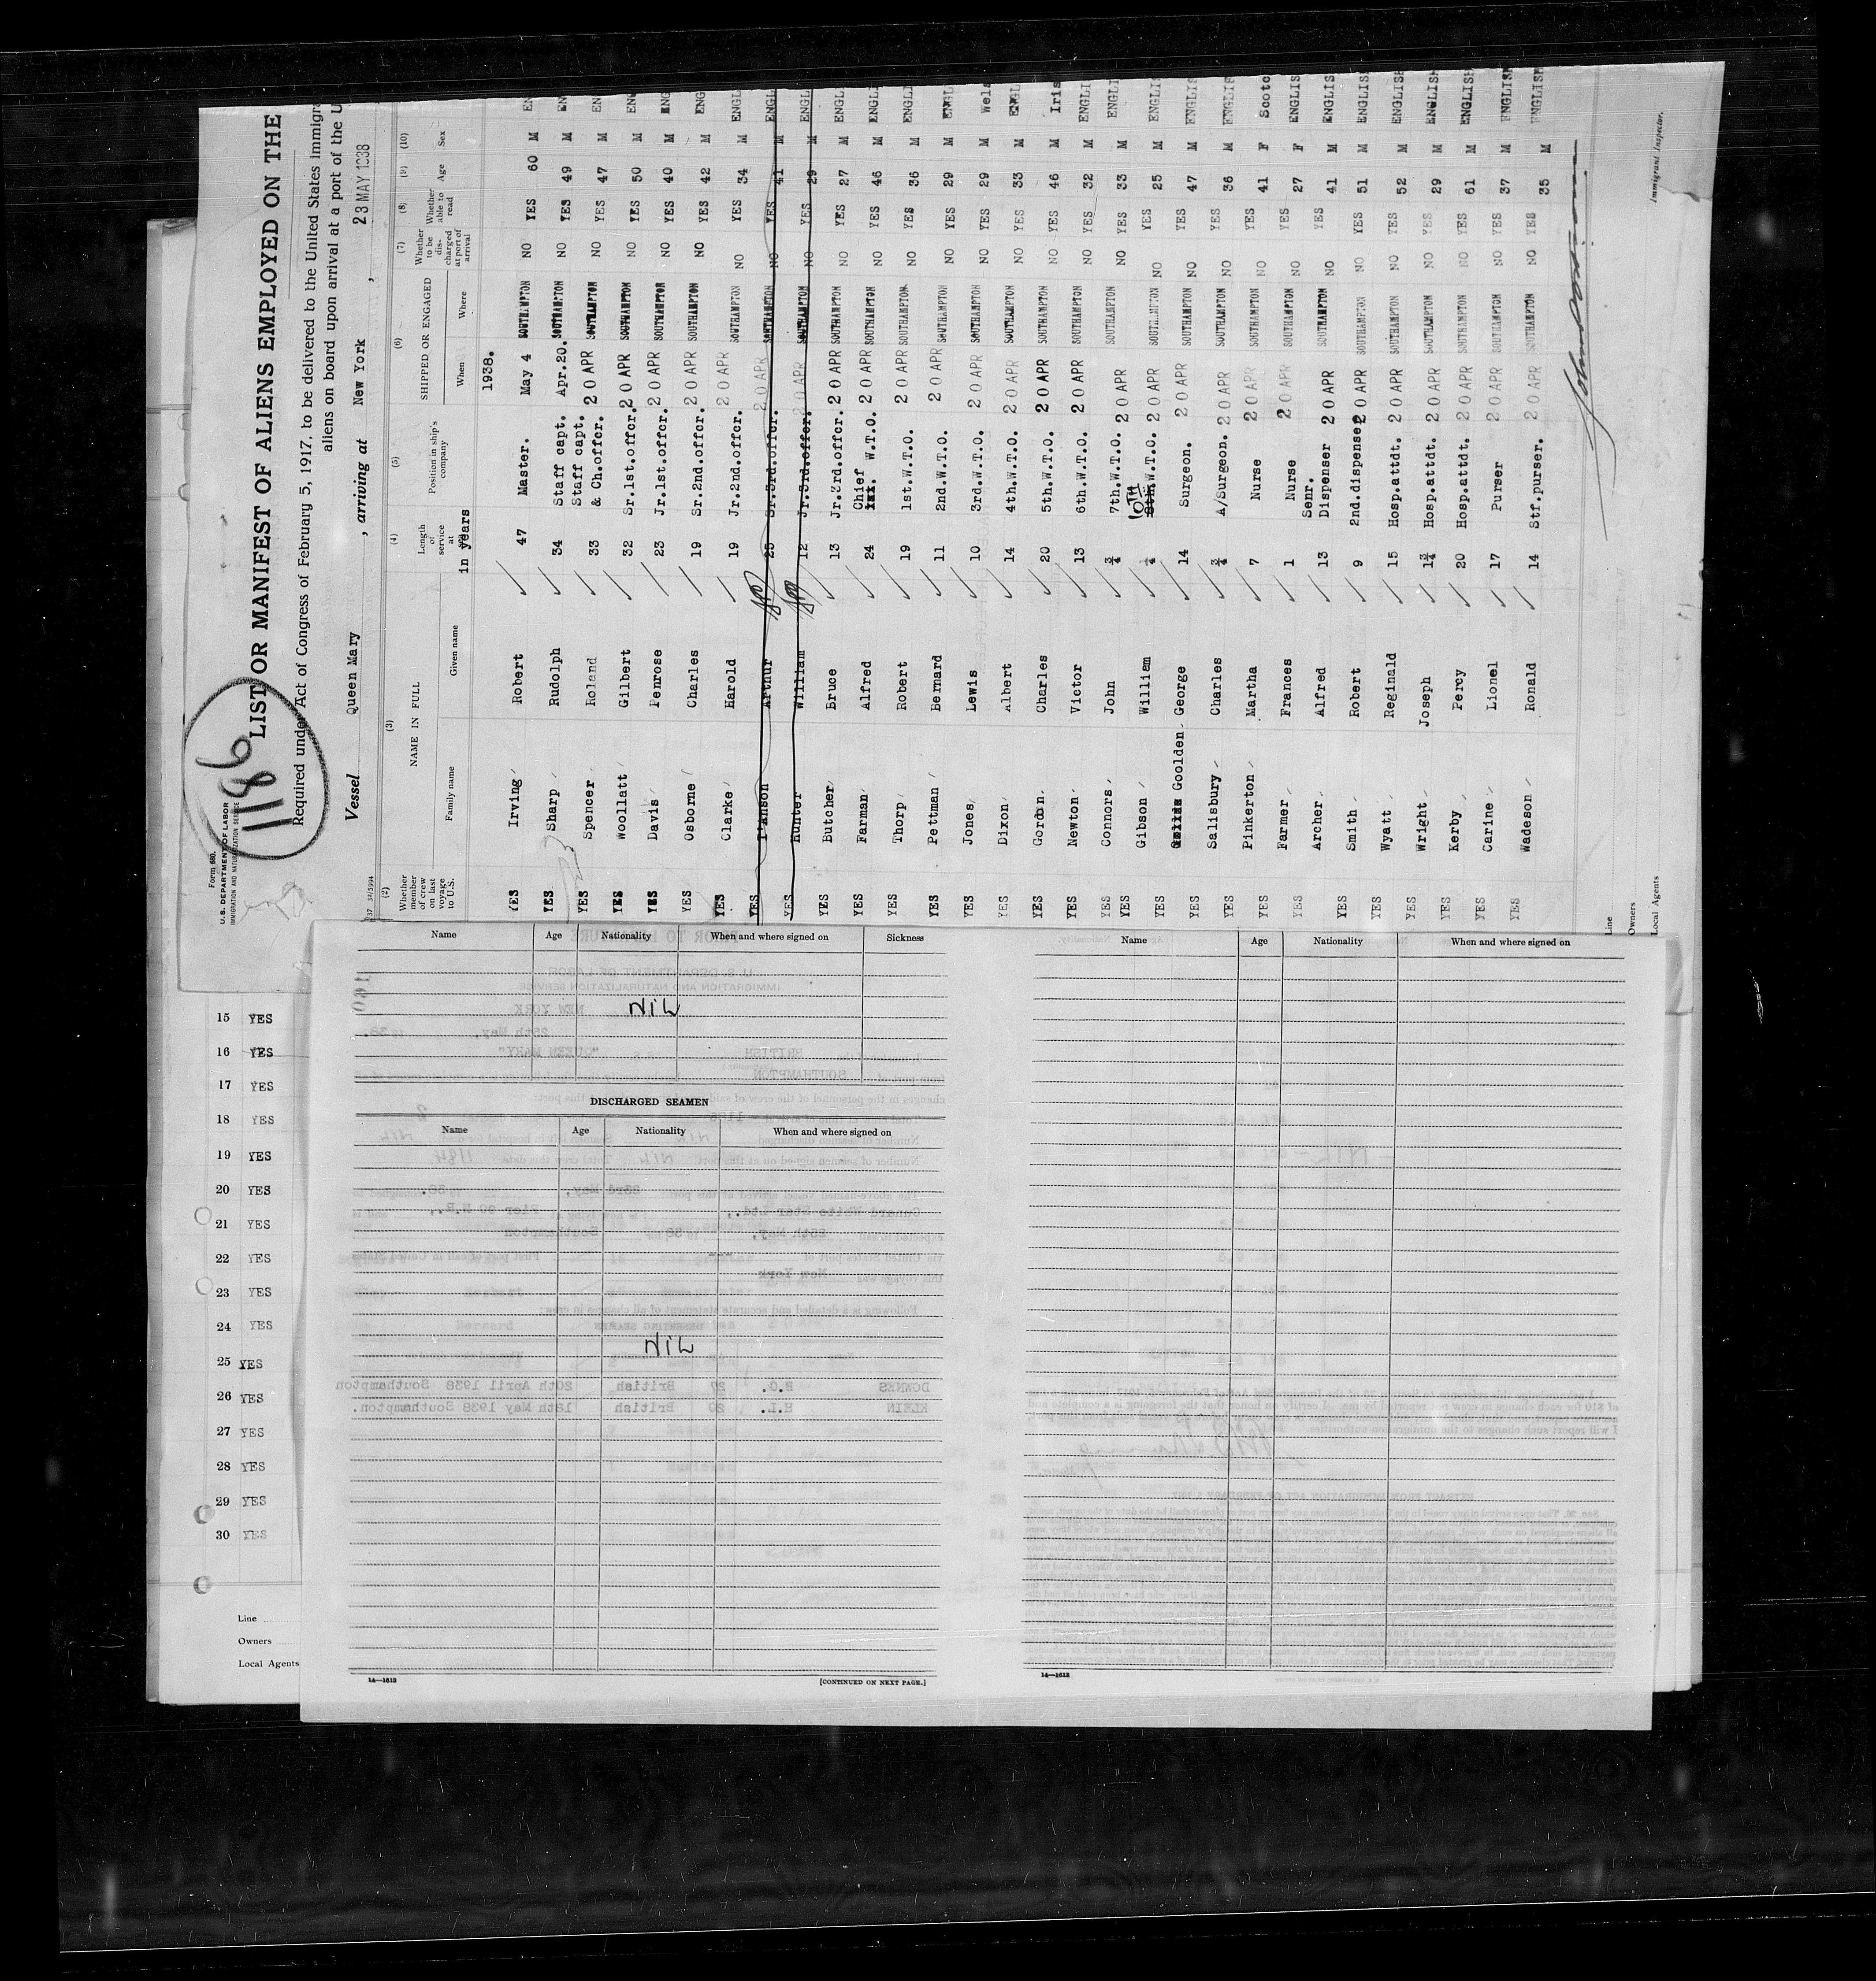 Form 680.
U. S. DEPARTMENT OF LABOR
IMMIGRATION AND NATURALIZATION SERVICE
1186
LIST OR MANIFEST OF ALIENS EMPLOYED ON THE
Required under Act of Congress of February 5, 1917, to be delivered to the United States immigra
aliens on board upon arrival at a port of the U
Vessel Queen Mary , arriving at New York , 23 MAY 1938
(2) (3) (4) (5) (6) (7) (8) (9) (10)
Whether member of crew on last voyage to U.S. NAME IN FULL Family name Given name Length of service at in years Position in ship's company SHIPPED OR ENGAGED When Where Whether to be discharged at port of arrival Whether able to read Age Sex
1938.
YES Irving Robert 47 Master. May 4 SOUTHAMPTON NO YES 60 M EN
YES Sharp Rudolph 34 Staff capt. Apr.20. SOUTHAMPTON NO YES 49 M EN
YES Spencer Roland 33 Staff capt. & Ch.offcr. 20 APR SOUTHAMPTON NO YES 47 M EN
YES Woollatt Gilbert 32 Sr.1st.offcr. 20 APR SOUTHAMPTON NO YES 50 M EN
YES Davis Penrose 23 Jr.1st.offcr. 20 APR SOUTHAMPTON NO YES 40 M ENG
YES Osborne Charles 19 Sr.2nd.offcr. 20 APR SOUTHAMPTON NO YES 42 M ENG
YES Clarke Harold 19 Jr.2nd.offcr. 20 APR SOUTHAMPTON NO YES 34 M ENGL
YES I'Anson Arthur 25 Sr.3rd.offcr. 20 APR SOUTHAMPTON NO YES 41 M ENGL
YES Hunter William 12 Jr.3rd.offcr. 20 APR SOUTHAMPTON NO YES 29 M ENGL
YES Butcher Bruce 13 Jr.3rd.offcr. 20 APR SOUTHAMPTON NO YES 27 M ENGL
YES Farman Alfred 24 Chief W.T.O. 20 APR SOUTHAMPTON NO YES 46 M ENGLI
YES Thorp Robert 19 1st.W.T.O. 20 APR SOUTHAMPTON NO YES 36 M ENGLI
YES Pettman Bernard 11 2nd.W.T.O. 20 APR SOUTHAMPTON NO YES 29 M ENGLI
YES Jones Lewis 10 3rd.W.T.O. 20 APR SOUTHAMPTON NO YES 29 M Wels
YES Dixon Albert 14 4th.W.T.O. 20 APR SOUTHAMPTON NO YES 33 M ENGL
YES Gordon Charles 20 5th.W.T.O. 20 APR SOUTHAMPTON NO YES 46 M Iris
YES Newton Victor 13 6th.W.T.O. 20 APR SOUTHAMPTON NO YES 32 M ENGLI
YES Connors John 3/4 7th.W.T.O. 20 APR SOUTHAMPTON NO YES 33 M ENGLI
YES Gibson William W.T.O. 20 APR SOUTHAMPTON NO YES 25 M ENGLIS
YES Goolden George 14 Surgeon. 20 APR SOUTHAMPTON NO YES 47 M ENGLIS
YES Salisbury Charles 3/4 A/Surgeon. 20 APR SOUTHAMPTON NO YES 36 M ENGLIS
YES Pinkerton Martha 7 Nurse 20 APR SOUTHAMPTON NO YES 41 F Scotc
YES Farmer Frances 1 Nurse 20 APR SOUTHAMPTON NO YES 27 F ENGLIS
YES Archer Alfred 13 Senr. Dispenser 20 APR SOUTHAMPTON NO YES 41 M ENGLIS
YES Smith Robert 9 2nd.dispenser 20 APR SOUTHAMPTON NO YES 51 M ENGLIS
YES Wyatt Reginald 15 Hosp.attdt. 20 APR SOUTHAMPTON NO YES 52 M ENGLISH
YES Wright Joseph 1 3/4 Hosp.attdt. 20 APR SOUTHAMPTON NO YES 29 M ENGLISH
YES Kerby Percy 20 Hosp.attdt. 20 APR SOUTHAMPTON NO YES 61 M ENGLISH
YES Carine Lionel 17 Purser 20 APR SOUTHAMPTON NO YES 37 M ENGLISH
YES Wadeson Ronald 14 Stf.purser. 20 APR SOUTHAMPTON NO YES 35 M ENGLISH
Line
Owners
Local Agents
Immigrant Inspector.
Name Age Nationality When and where signed on Sickness
NIL
DISCHARGED SEAMEN
Name Age Nationality When and where signed on
NIL
14—1613
[CONTINUED ON NEXT PAGE.]
Name Age Nationality When and where signed on
14—1613
15 YES
16 YES
17 YES
18 YES
19 YES
20 YES
21 YES
22 YES
23 YES
24 YES
25 YES
26 YES
27 YES
28 YES
29 YES
30 YES
Line
Owners
Local Agents